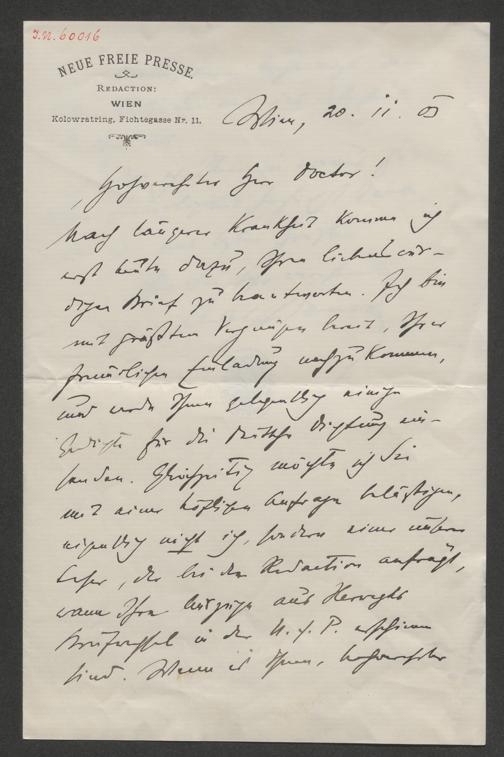 J.N. 60016
NEUE FREIE PRESSE.
REDACTION:
WIEN
Kolowratring, Fichtegasse Nr. 11.
Wien, 20. II. 05
Hochverehrter Herr Doctor!
Nach längerer Krankheit komme ich
erst heute dazu, Ihren liebenswür-
digen Brief zu beantworten. Ich bin
mit größtem Vergnügen bereit, Ihrer
freundlichen Einladung nachzukommen,
und werde Ihnen gelegentlich einige
Gedichte für die deutsche Dichtung ein-
senden. Gleichzeitig möchte ich Sie
mit einer höflichen Anfrage belästigen,
eigentlich nicht ich, sondern einer unserer
Leser, der bei der Redaction anfrägt,
wann Ihre Auszüge aus Herweghs
Briefwechsel in der N. f. P. erschienen
sind. Wenn es Ihnen, hochverehrter